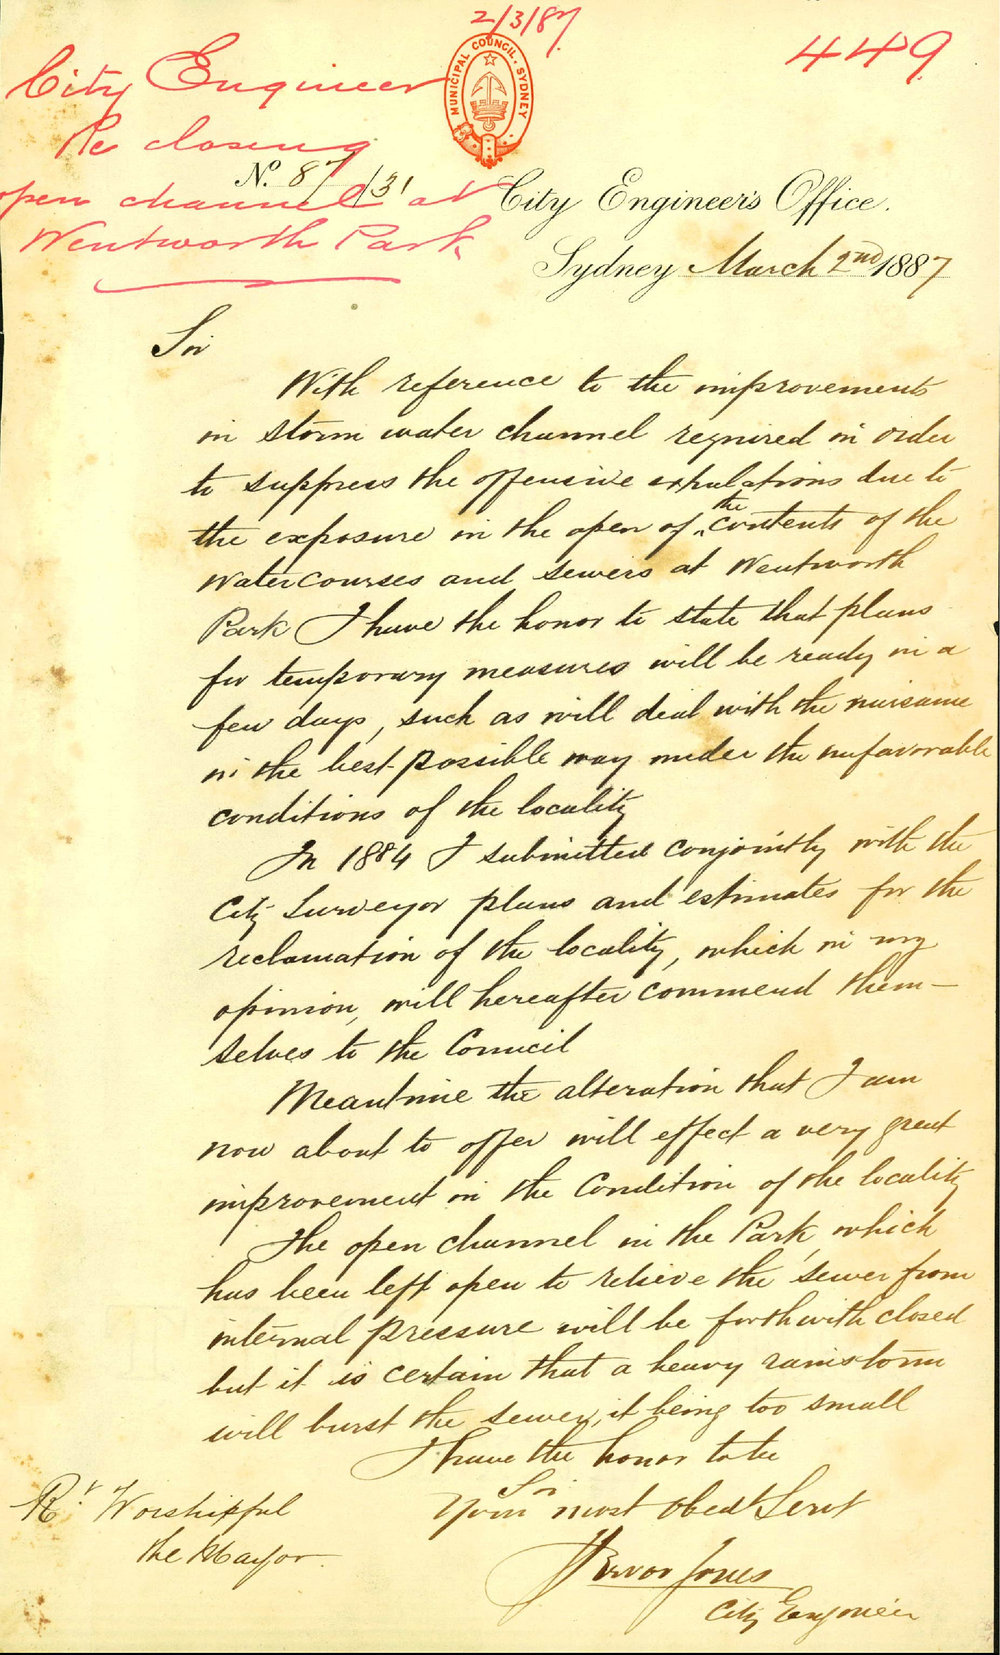 2/3/87.
449
City Engineer
Re closing
open channel at
Wentworth Park
MUNICIPAL COUNCIL. SYDNEY
No. 87/131
City Engineer's Office.
Sydney March 2nd 1887
Sir
With reference to the improvements
in storm water channel required in order
to suppress the offensive exhalations due to
the exposure in the open of the contents of the
Watercourses and sewers at Wentworth
Park I have the honor to state that plans
for temporary measures will be ready in a
few days, such as will deal with the nuisance
in the best possible way under the unfavorable
conditions of the locality
In 1884 I submitted conjointly with the
City Surveyor plans and estimates for the
reclamation of the locality, which in my
opinion, will hereafter commend them-
selves to the Council
Meantime the alteration that I am
now about to offer will effect a very great
improvement in the Condition of the locality
The open channel in the Park, which
has been left open to relieve the sewer from
internal pressure will be forthwith closed
but it is certain that a heavy rainstorm
will burst the sewer, it being too small
I have the honor to be
Sir
Your most Obed Servt
Trevor Jones
City Engineer
Rt. Worshipful
the Mayor